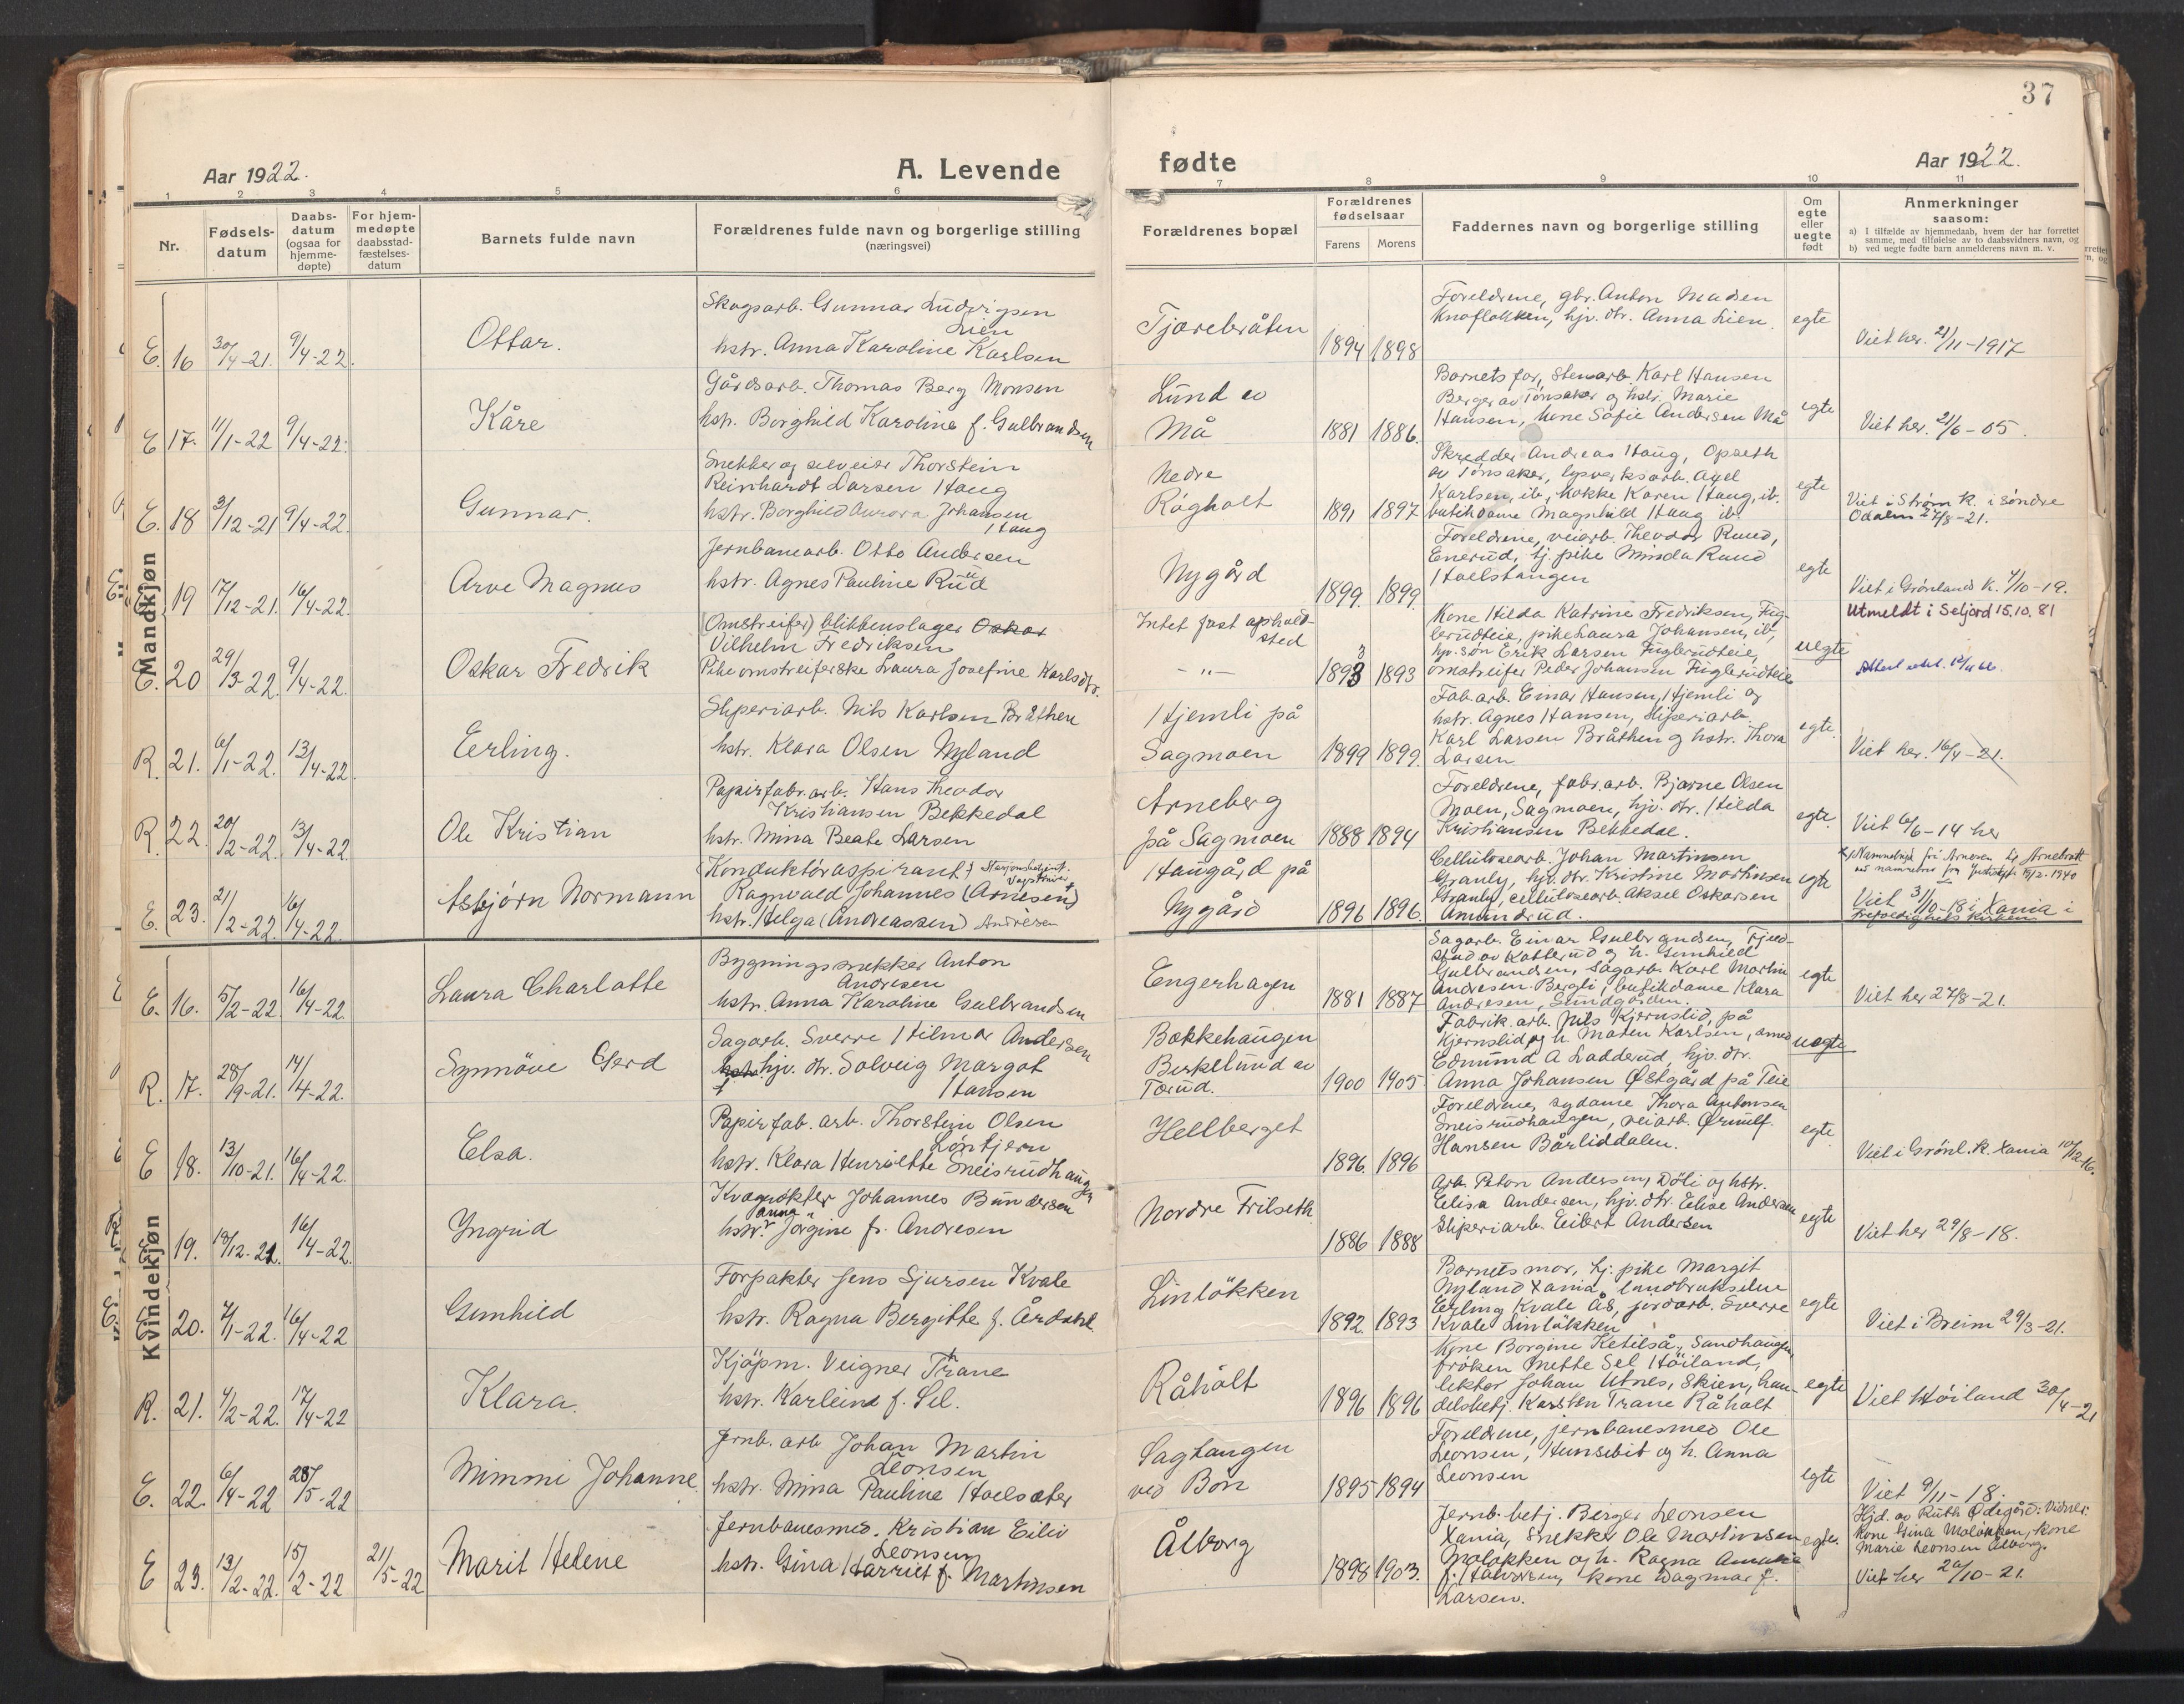 37
Aar 1922.
A. Levende
fødte
Aar 1922.
1 2 3 4 5 6 7 8 9 10 11
Nr.
Fødsels-
datum
Daabs-
datum
(ogsaa for
hjemme-
døpte)
For hjem-
medøpte
daabsstad-
fæstelses-
datum
Barnets fulde navn
Forældrenes fulde navn og borgerlige stilling
(næringsvei)
Forældrenes bopæl
Forældrenes
fødselsaar
Farens
Morens
Faddernes navn og borgerlige stilling
Om
egte
eller
uegte
født
Anmerkninger
saasom:
a) I tilfælde av hjemmedaab, hvem der har forrettet
samme, med tilføielse av to daabsvidners navn, og
b) ved uegte fødte barn anmelderens navn m. v.
Mandkjøn
E. 16 30/4-21. 9/4-22.
Ottar.
Skogsarb. Gunnar Ludvigsen
Lien
hstr. Anna Karoline Karlsen
Tjærebråten
1894 1898
Foreldrene, gbr. Anton Madsen
Knoflokken, hjv. dtr. Anna Lien.
egte
Viet her. 21/11-1917
E 17. 11/1-22 9/4-22.
Kåre
Gårdsarb. Thomas Berg Monsen
hstr. Borghild Karoline f. Gulbrandsen
Lund av
Må
1881 1886.
Barnets far, stenarb. Karl Hansen
Berger av Tønsaker og hstr. Marie
Hansen, kone Sofie Andersen Må
egte
Viet her. 21/6-05.
E. 18 3/12-21 9/4-22.
Gunnar.
Snekker og selveier Thorstein
Reinhardt Larsen Haug
hstr. Borghild Aurora Johansen
Haug
Nedre
Rågholt
1891 1897
Skredder Andreas Haug, Opseth
av Tønsaker, lysverksarb. Axel
Karlsen, ib., kokke Karen Haug, ib.
butikdame Magnhild Haug ib.
egte
Viet i Strøm K. i søndre
Odalen 27/8-21.
19 17/12-21. 16/4-22.
Arve Magnus
Jernbanearb. Otto Andersen
hstr. Agnes Pauline Ruud
Nygård
1899. 1899.
Foreldrene, veiarb. Theodor Ruud,
Enerud, tj. pike Minda Ruud
Haelstangen
egte
Viet i Grønlands K. 4/10-19.
Utmeldt i Seljord 15.10.81
E. 20 29/3-22. 9/4-22.
Oskar Fredrik
(Omstreifer) blikkenslager Oskar
Vilhelm Fredriksen
Pike omstreiferske Laura Josefine Karlsdtr.
Intet fast ophold-
sted
-"-
1893 1893
Kone Hilda Katrine Fredriksen, Fug-
lerudteie, pike Laura Johansen, ib,
hjv. søn Erik Larsen Fuglerudteie,
omstreifer Peder Johansen Fuglerudteie
uegte
R. 21. 6/1-22. 13/4-22
Eerling.
Sliperiarb. Nils Karlsen Bråthen
hstr. Klara Olsen Nyland
Hjemli på
Sagmoen
1899 1899.
Fab. arb. Einar Hansen, Hjemli og
hstr. Agnes Hansen, sliperiarb.
Karl Larsen Bråthen og hstr. Thora
Larsen
egte.
Viet her. 16/4-21.
R. 22. 20/2-22. 13/4-22
Ole Kristian
Papirfabr. arb. Hans Theodor
Kristiansen Bekkedal
hstr. Mina Beate Larsen
Arneberg
på Sagmoen
1888 1894
Foreldrene, fabr. arb. Bjarne Olsen
Moen, Sagmoen, hjv. dtr. Hilda
Kristiansen Bekkedal.
egte.
Viet 6/6-14 her
E. 23. 21/2-22. 16/4-22.
Asbjørn Normann
(Konduktøraspirant) Stasjonsbetjent.
Ragnvald Johannes (Arnesen)
hstr. Helga (Andreassen) Andresen
Haugård på
Nygård
1896 1896.
Cellulosearb. Johan Martinsen
Granly, hjv. dtr. Kristine Martinsen
Granly, cellulosearb. Aksel Oskarsen
Amundrud.
egte
Viet 31/10-18 i Xania i
Trefoldighets kirken
Kvindekjøn
E. 16. 5/2-22. 16/4-22.
Laura Charlotte
Bygningssnekker Anton
Andresen
hstr. Anna Karoline Gulbrandsen
Engerhagen
1881 1887
Sagarb. Einar Gulbrandsen, Fjeld-
stad av Katterud og h. Gunhild
Gulbrandsen, Sagarb. Karl Martin
Andresen Bergli, butikdame Klara
Andresen, Lundgården.
egte
Viet her 27/8-21.
R. 17. 28/9-21. 14/4-22.
Synnöve Gerd
Sagarb. Sverre Hilmar Andersen
hstr. hjv. dtr. Solveig Margot
Hansen
Bækkehaugen
Berkelund av
Tærud.
1900 1905
Fabrik. arb. Nils Kjernslid, på
Kjernslid og h. Maten Karlsen, smed
Edmund A Ladderud, hjv. dtr.
Anna Johansen Østgård på Teie
uegte
E 18. 13/10-21. 16/4-22.
Elsa.
Papirfab. arb. Thorstein Olsen
Löntjern
hstr. Klara Henriette Sneisrudhaugen
Hellberget
1896. 1896
Foreldrene, sydame Thora Antonsen
Sneisrudhaugen, veiarb. Ørnulf.
Hansen Bårliddalen.
egte
Viet i Grønl. K. Xania 10/12-16.
19. 19/12-21. 16/4-22.
Yngrid
Kvægrøkter Johannes Bundersen
hstr. Anna Jörgine f. Andresen
Nordre Frilseth
1886 1888
Arb. Peton Andersen, Döli og hstr.
Eelisa Andersen, hjv. dtr. Eelise Andersen
sliperiarb. Eilert Andersen
egte
Viet her 29/8-18.
20. 7/1-22. 16/4-22
Gunhild
Forpakter Jens Sjursen Kvale
hstr. Ragna Bergitte f. Årdahl
Linløkken
1892. 1893
Barnets mor, tj. pike Margit
Nyland Xania, landbrukselev
Eerling Kvale Ås, jordarb. Sverre
Kvale Linløkken
egte
Viet i Breim 29/3-21.
R. 21. 4/2-22. 17/4-22
Klara.
Kjöpm. Veigner Trane
hstr. Karleine f. Sel.
Råholt
1896 1896
Kone Borgine Ketilså, Sandhaugen,
frøken Mette Sel Höiland,
lektor Johan Utnes, Skien, han-
delsbetj. Karsten Trane Råholt
egte
Viet Höiland 30/4-21
E. 22. 6/4-22 28/5-22
Mimmi Johanne
Jernb. arb Johan Martin
Leonsen
hstr. Mina Pauline Haelsæter
Sagtangen
ved Bøn
1895 1894
Foreldrene, jernbanesmed Ole
Leonsen, Hunsebit og h. Anna
Leonsen
egte
Viet 9/11-18.
E 23. 13/2-22. 15/2-22 21/5-22
Marit Helene
Jernbanesmed. Kristian Eiliv
Leonsen
hstr. Gina Harriet f. Martinsen
Ålborg
1898 1903.
Jernb. betj. Birger Leonsen
Xania, Snekker Ole Martinsen
Moløkken og h. Ragna Amalie
f. Halvorsen, kone Dagmar f.
Larsen.
egte.
Hjd. av Ruth Ødegård: Vidner:
kone Gina Moløkken, kone
Marie Leonsen Ålborg.
Viet her 20/10-21.